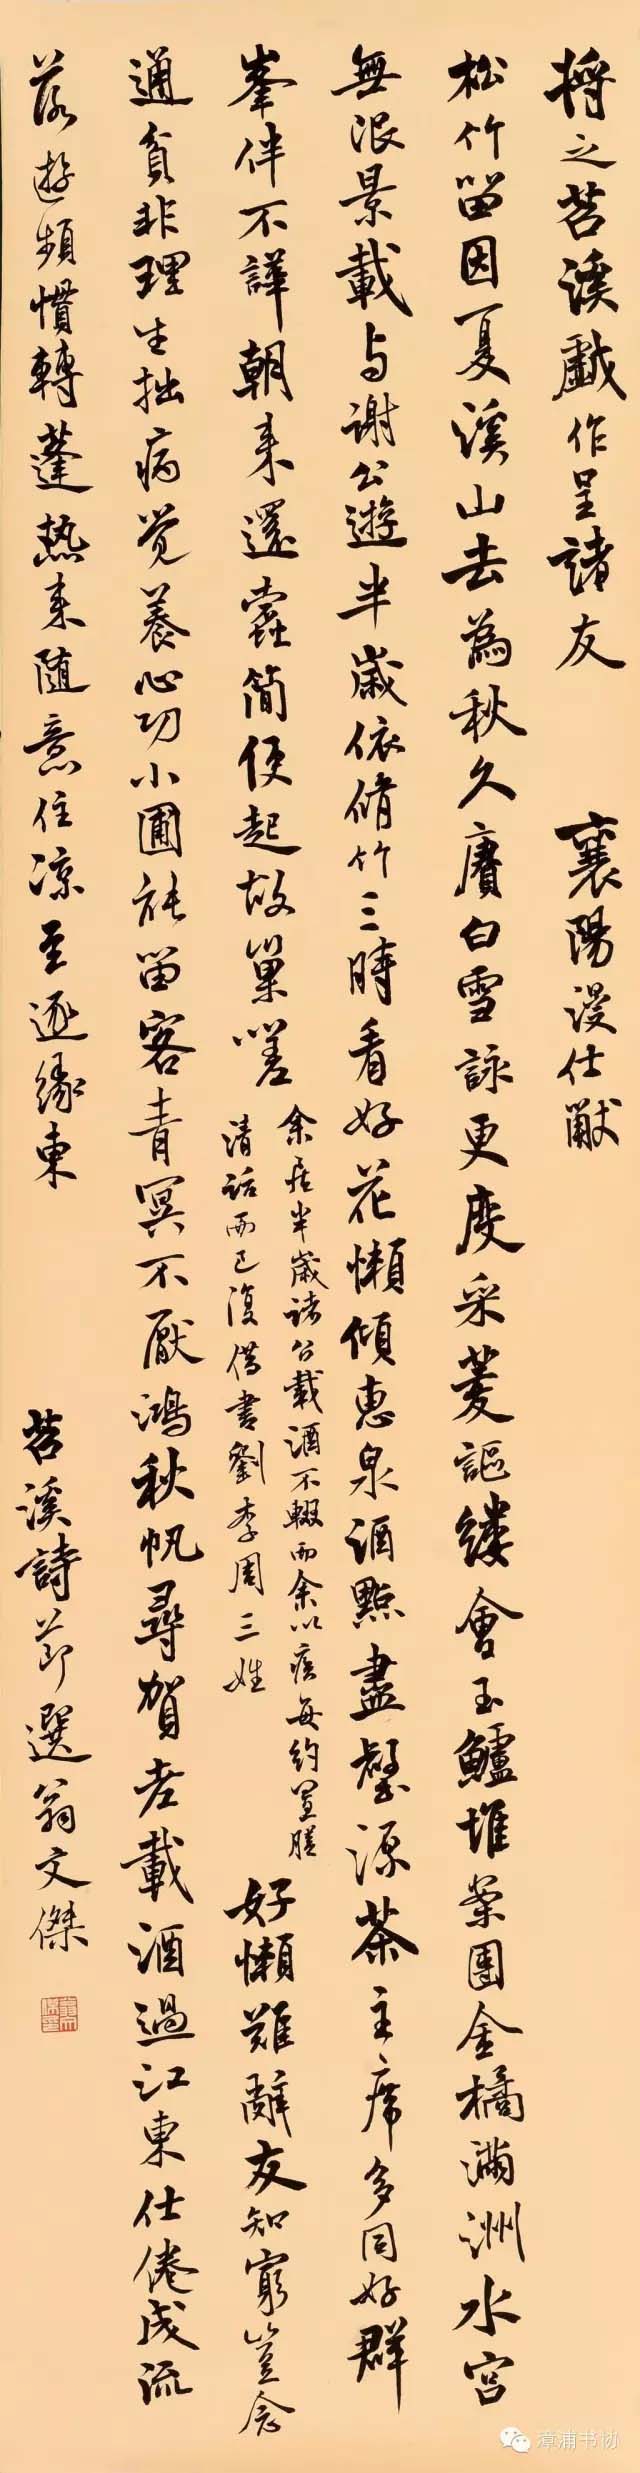 將之苕溪戲作呈諸友 襄陽漫仕黻
松竹留因夏溪山去為秋久賡白雪詠更度采菱謳縷會玉鱸堆案團金橘滿洲水宮
無限景載与謝公遊半歲依脩竹三時看好花懶傾惠泉酒點盡壑源茶主席多同好群
峯伴不譁朝来還蠹簡便起故巢嗟
余居半歲諸公載酒不輟而余以疾每約置膳
清話而已復借書劉李周三姓
好懶難辭友知窮豈念
通貧非理生拙病覺養心功小圃能留客青冥不厭鴻秋帆尋賀老載酒過江東仕倦成流
落遊頻慣轉蓬熱来随意住涼至逐緣東
苕溪詩節選翁文傑
漳浦书协